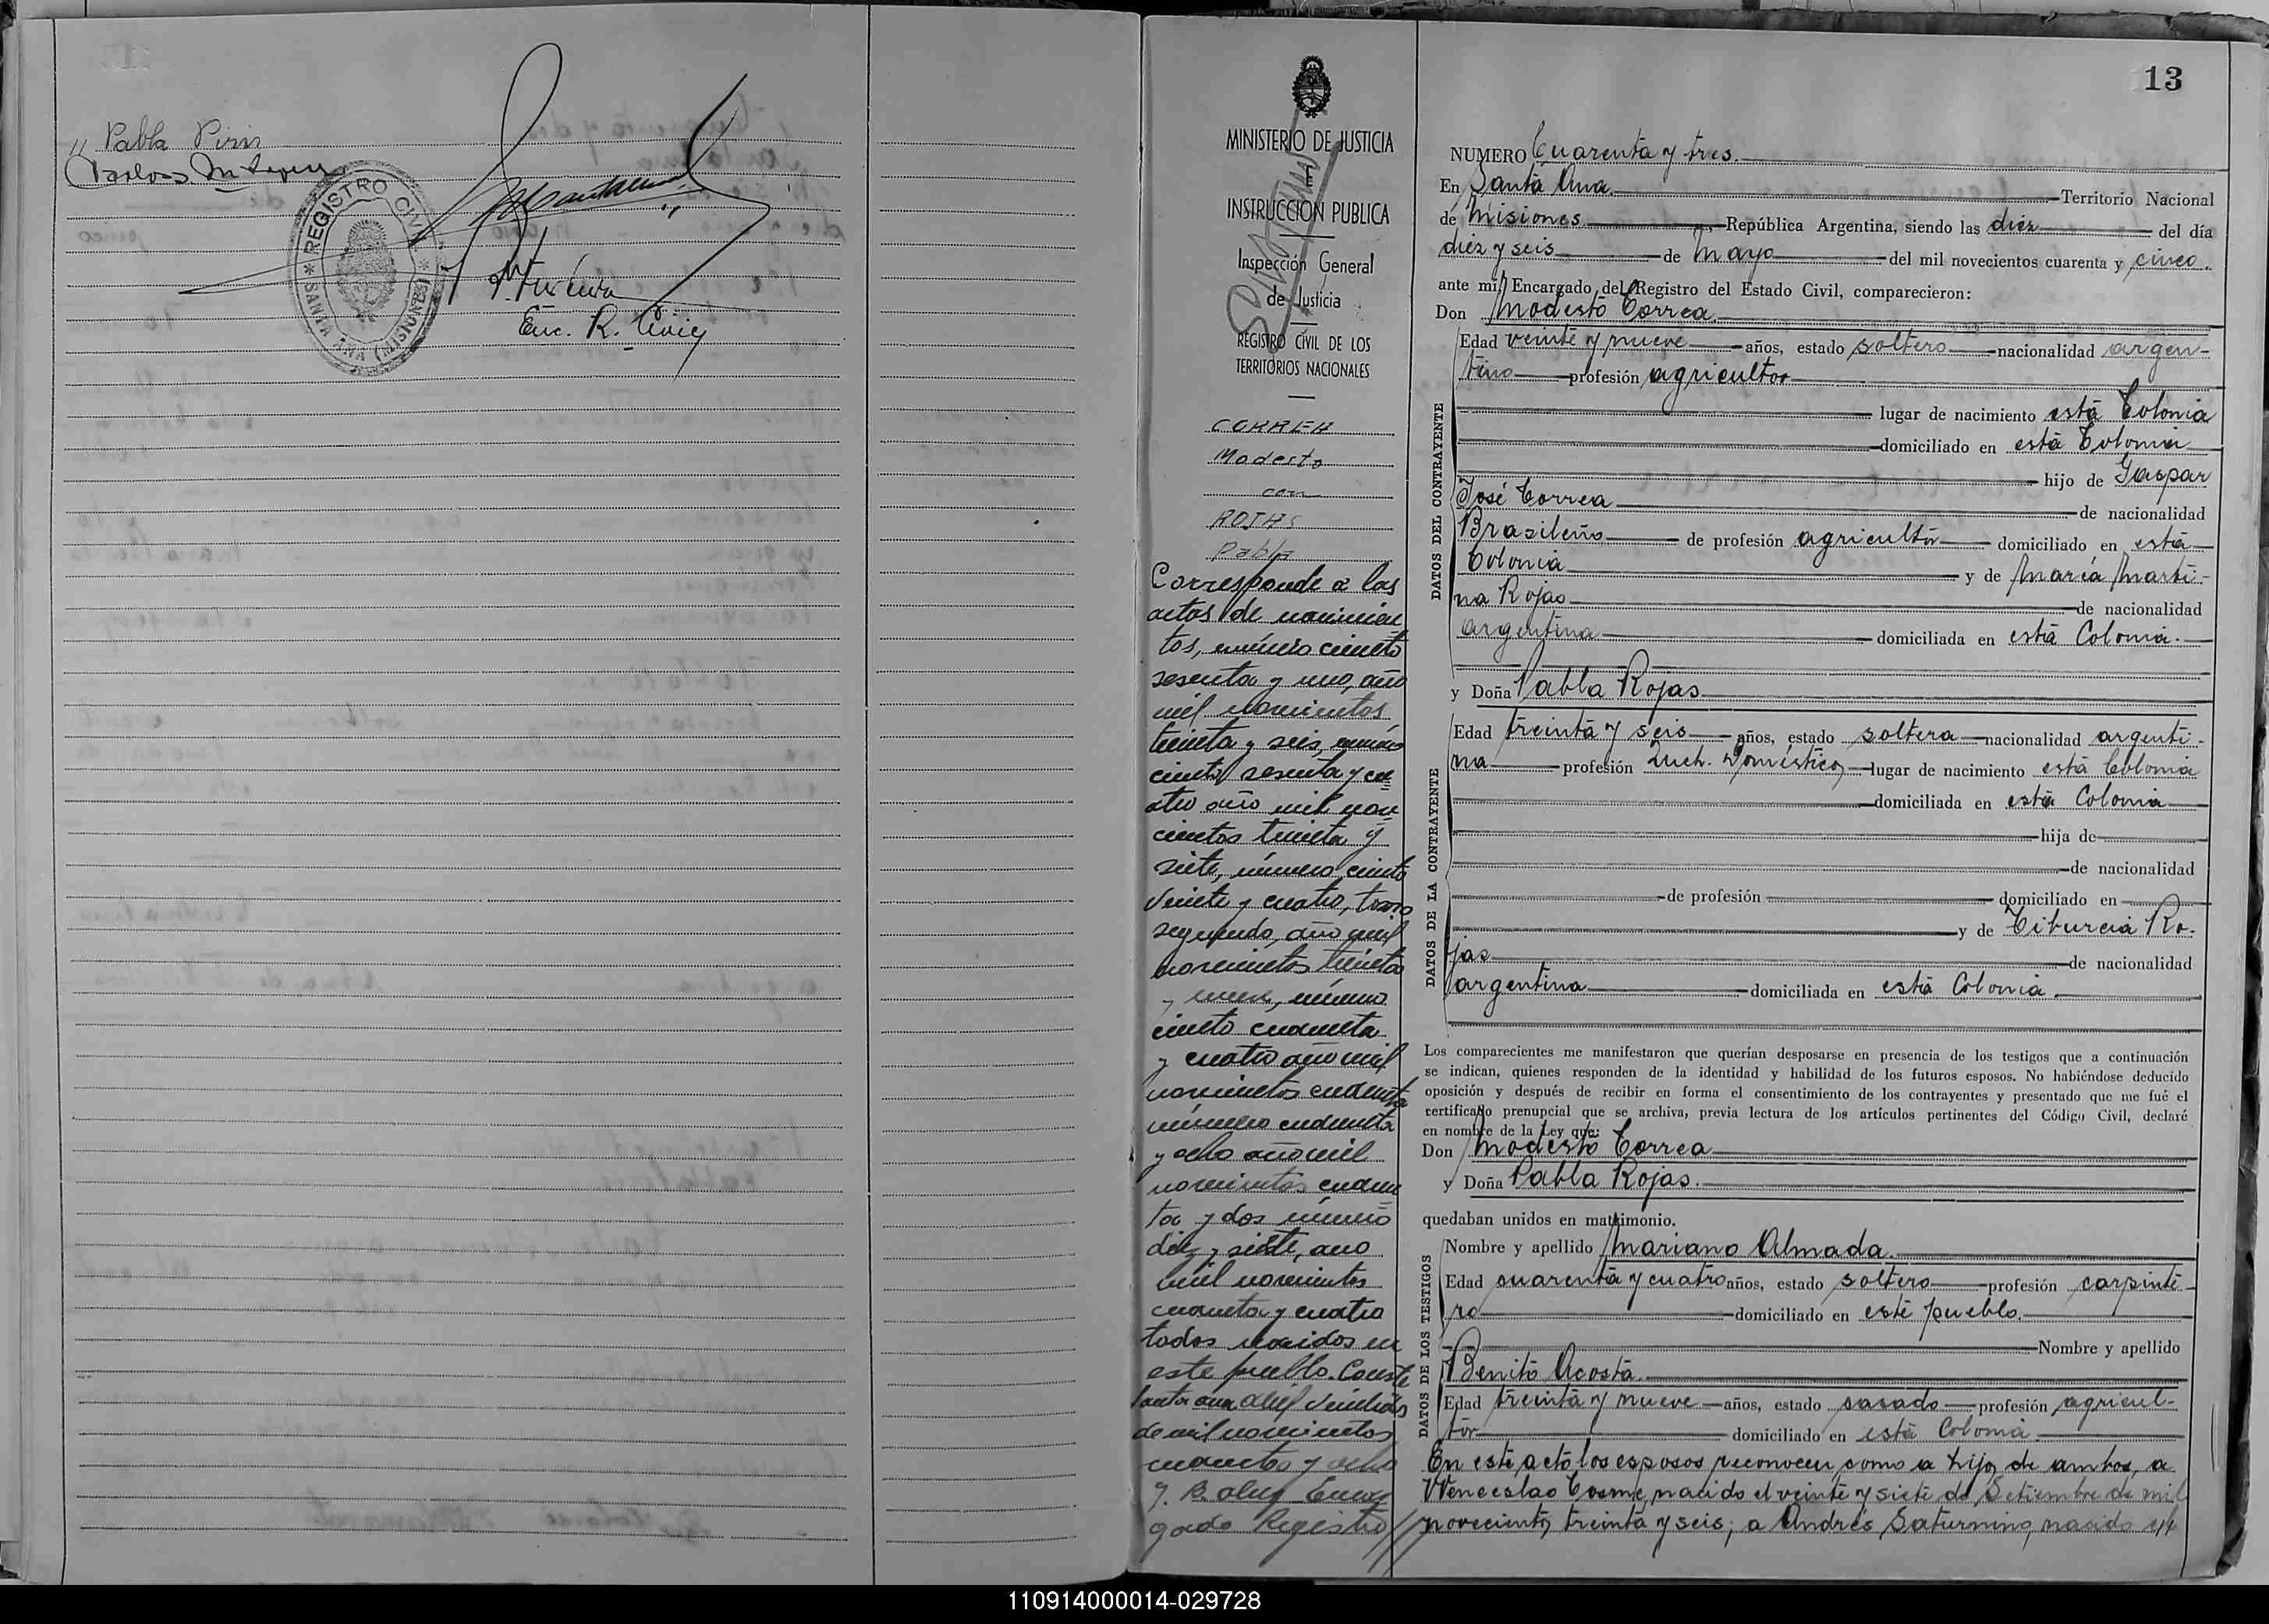 " Pabla Piris
REGISTRO CIVIL
* SANTA ANA (MISIONES) *
Enc. R. Civil
13
MINISTERIO DE JUSTICIA
E
INSTRUCCION PUBLICA
Inspección General
de Justicia
REGISTRO CIVIL DE LOS
TERRITORIOS NACIONALES
CORREA
Modesto
con
ROJAS
Pabla
Corresponde a las
actas de nacimien
tos, número ciento
sesenta y uno, año
mil novecientos
treinta y seis, número
ciento sesenta y cu
atro año mil nove
cientos treinta y
siete, número ciento
veinte y cuatro, tomo
segundo, año mil
novecientos treinta
y nueve, número
ciento cuarenta
y cuatro año mil
novecientos cuarenta
número cuarenta
y ocho año mil
novecientos cuaren
ta y dos número
diez y siete, año
mil novecientos
cuarenta y cuatro
todos nacidos en
este pueblo. Conste
Santa Ana abril veintidos
de mil novecientos
cuarenta y ocho
gado Registro
NUMERO Cuarenta y tres.
En Santa Ana. Territorio Nacional
de Misiones República Argentina, siendo las diez del día
diez y seis de Mayo del mil novecientos cuarenta y cinco.
ante mí, Encargado del Registro del Estado Civil, comparecieron:
Don Modesto Correa.
DATOS DEL CONTRAYENTE
Edad veinte y nueve años, estado soltero nacionalidad argen-
tino profesión agricultor
lugar de nacimiento está Colonia
domiciliado en está Colonia
hijo de Gaspar
José Correa de nacionalidad
Brasileño de profesión agricultor domiciliado en está
Colonia y de María Marti-
na Rojas de nacionalidad
argentina domiciliada en está Colonia.
y Doña Pabla Rojas
DATOS DE LA CONTRAYENTE
Edad treinta y seis años, estado soltera nacionalidad argenti-
na profesión Queh. Domésticos lugar de nacimiento está Colonia
domiciliada en está Colonia
hija de
de nacionalidad
de profesión domiciliado en
y de Tiburcia Ro-
jas de nacionalidad
argentina domiciliada en está Colonia.
Los comparecientes me manifestaron que querían desposarse en presencia de los testigos que a continuación
se indican, quienes responden de la identidad y habilidad de los futuros esposos. No habiéndose deducido
oposición y después de recibir en forma el consentimiento de los contrayentes y presentado que me fué el
certificado prenupcial que se archiva, previa lectura de los artículos pertinentes del Código Civil, declaré
en nombre de la Ley que:
Don Modesto Correa
y Doña Pabla Rojas.
quedaban unidos en matrimonio.
DATOS DE LOS TESTIGOS
Nombre y apellido Mariano Almada.
Edad cuarenta y cuatro años, estado soltero profesión carpinte-
ro domiciliado en esté pueblo.
Nombre y apellido
Benito Acosta.
Edad treinta y nueve años, estado casado profesión agricul-
tor domiciliado en está Colonia.
En esté acto los esposos reconocen como a hijos de ambos, a
Wenceslao Cosme, nacido el veinte y siete de Setiembre de mil
novecientos treinta y seis; a Andrés Saturnino, nacido el
110914000014-029728